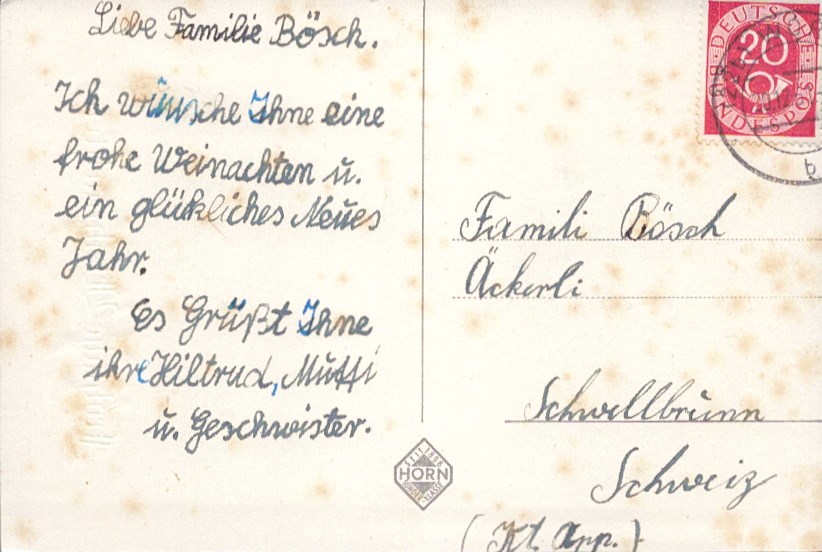 Liebe Familie Bösch.
Ich wünsche Ihne eine
frohe Weinachten u.
ein glückliches Neues
Jahr.
Es Grüßt Ihne
ihre Hiltrud, Mutti
u. Geschwister.
DEUTSCHE
BUNDESPOST
20
b
Famili Bösch
Äckerli
Schwellbrunn
Schweiz
(Kt. App.)
SEIT 1898
HORN
KLASSE